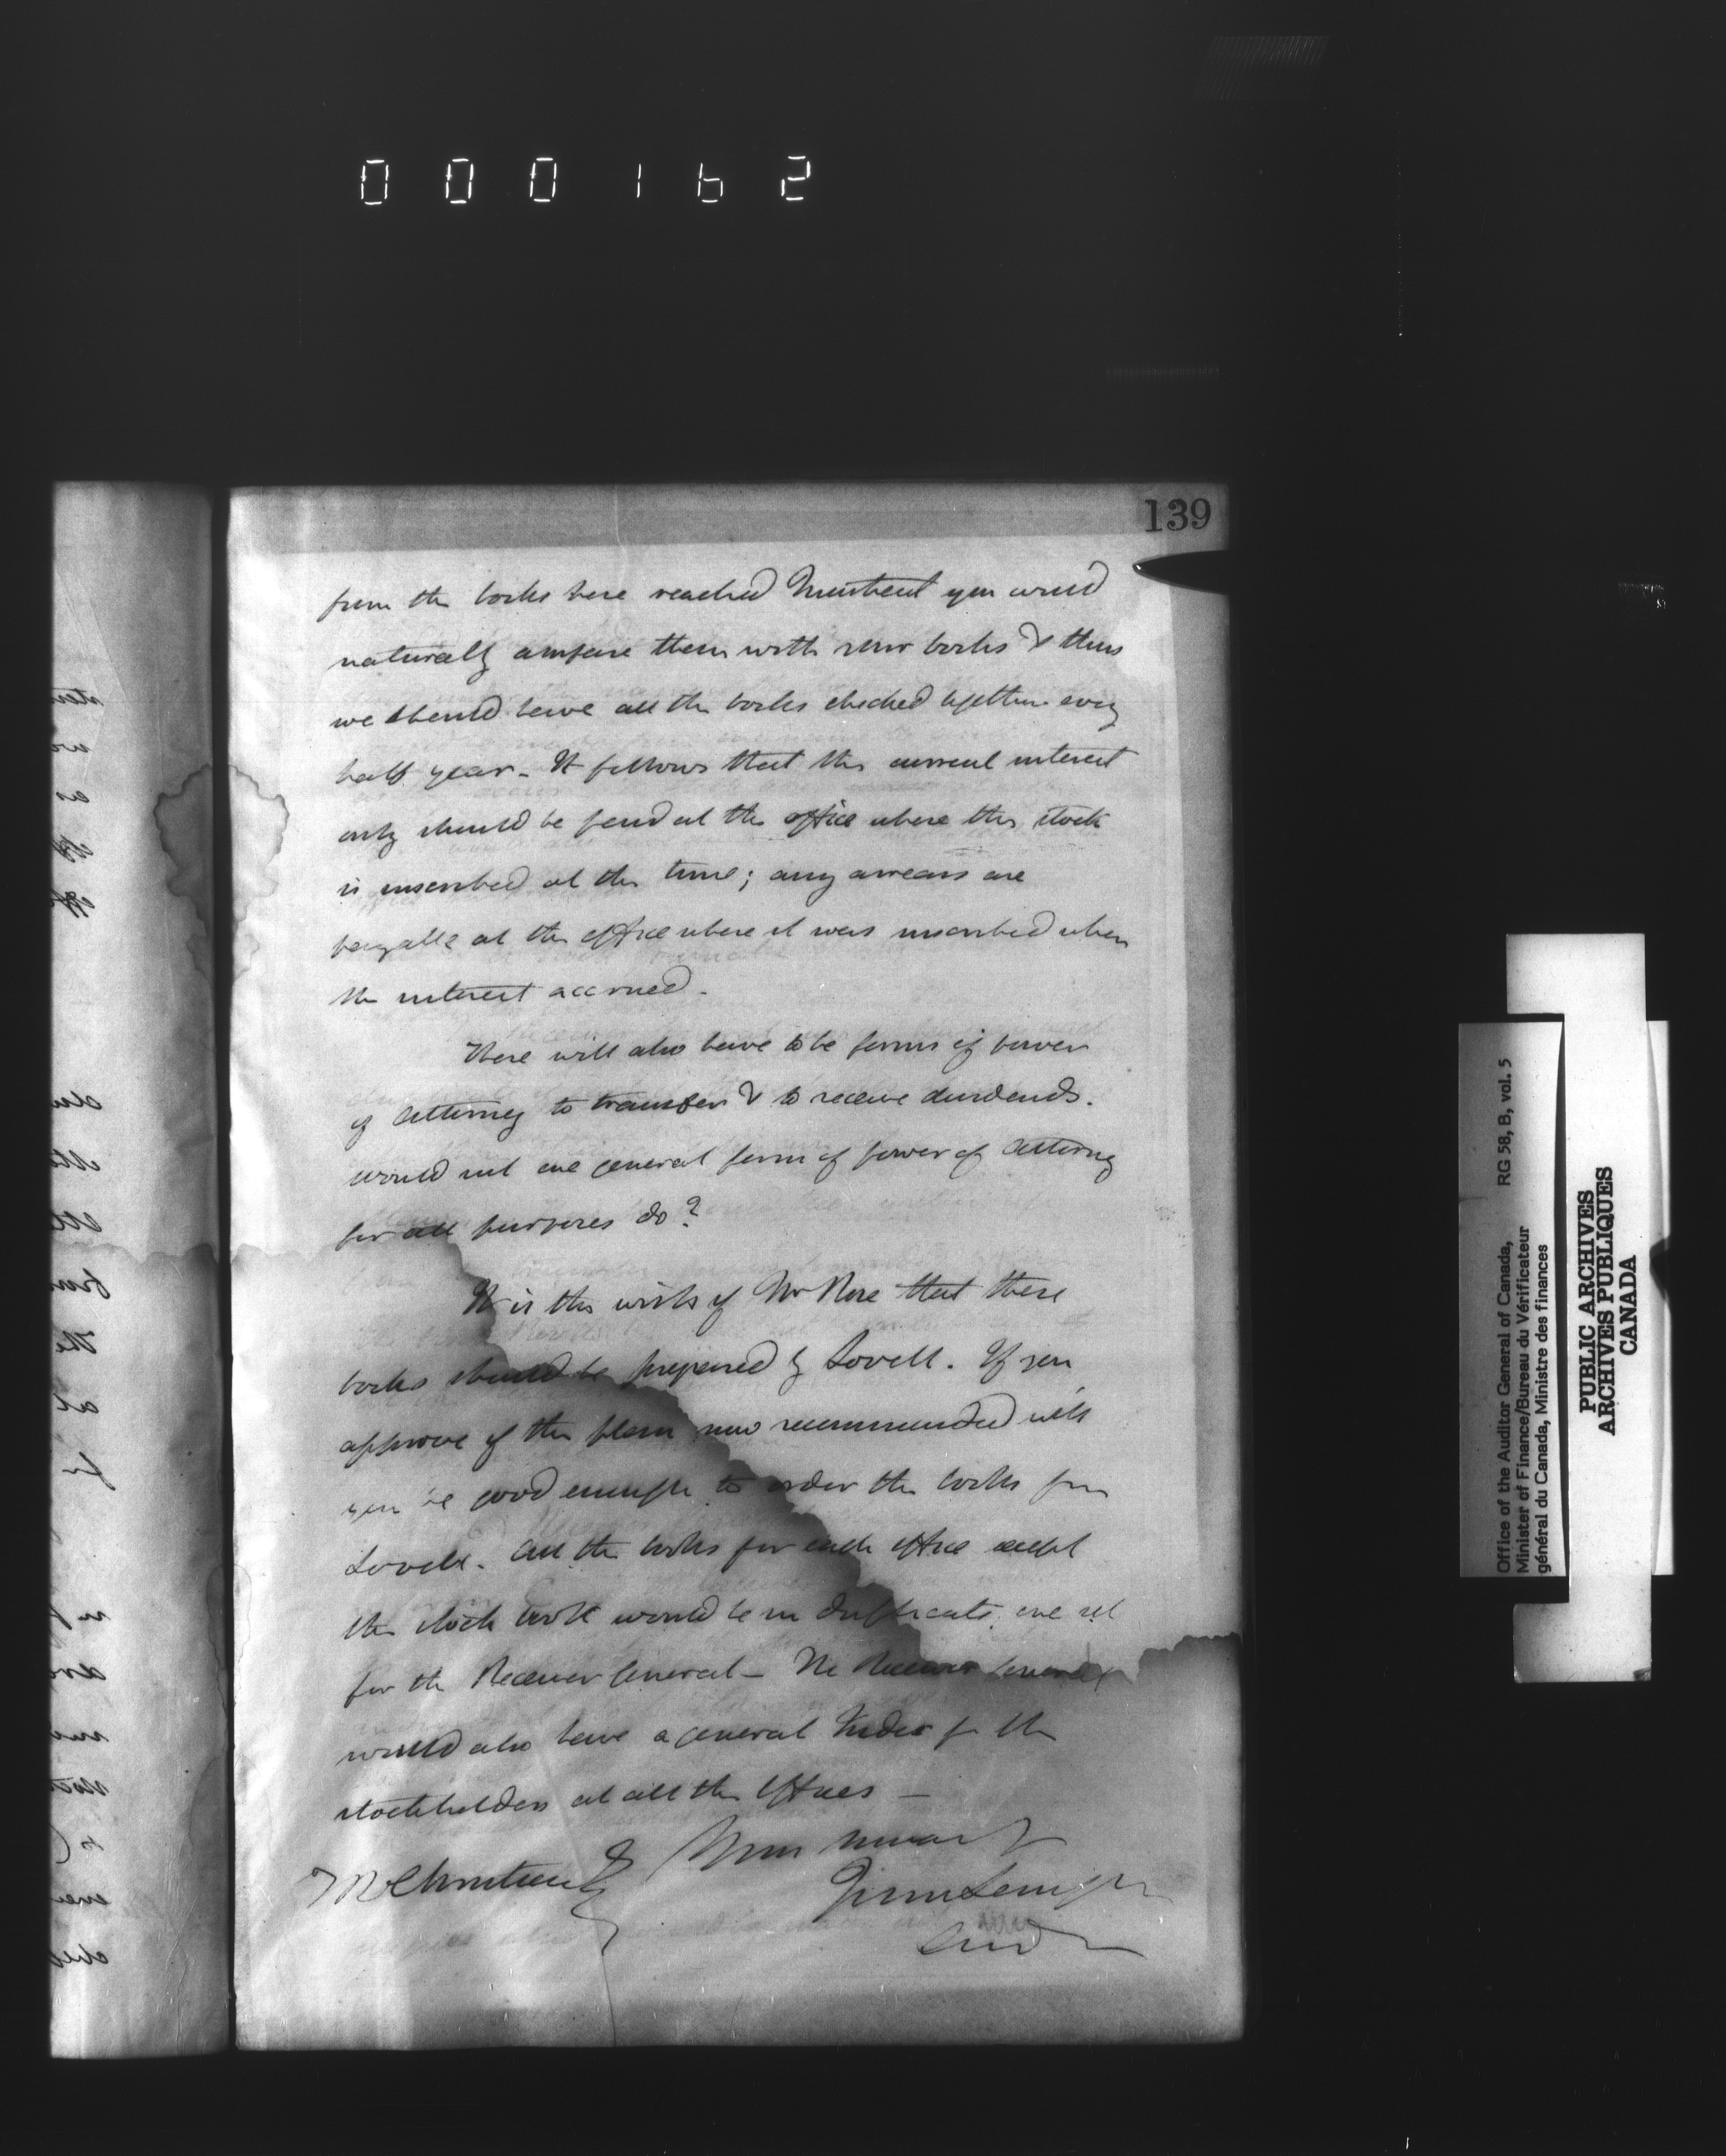 000162
139
from the books here reached Montreal you would
naturally compare them with your books & thus
we should have all the books checked together every
half year - It follows that the current interest
only should be paid at the office where the stock
is inscribed at the time; any arrears are
payable at the office where it was inscribed when
the interest accrued -
There will also have to be forms of power
of Attorney to transfer & to receive dividends.
would not one general form of power of Attorney
for all purposes do?
It is the wish of Mr Rose that these
books should be prepared by Lovell. If you
approve of the plan now recommended will
you be good enough to order the books from
Lovell. All the books for each office except
the stock book would be in duplicate, one set
for the Receiver General - The Receiver General
would also have a general Index for the
stockholders at all the Offices -
Yours
John Langton
Aud
Office of the Auditor General of Canada, RG 58, B, vol. 5
Minister of Finance/Bureau du Vérificateur
général du Canada, Ministre des finances
PUBLIC ARCHIVES
ARCHIVES PUBLIQUES
CANADA